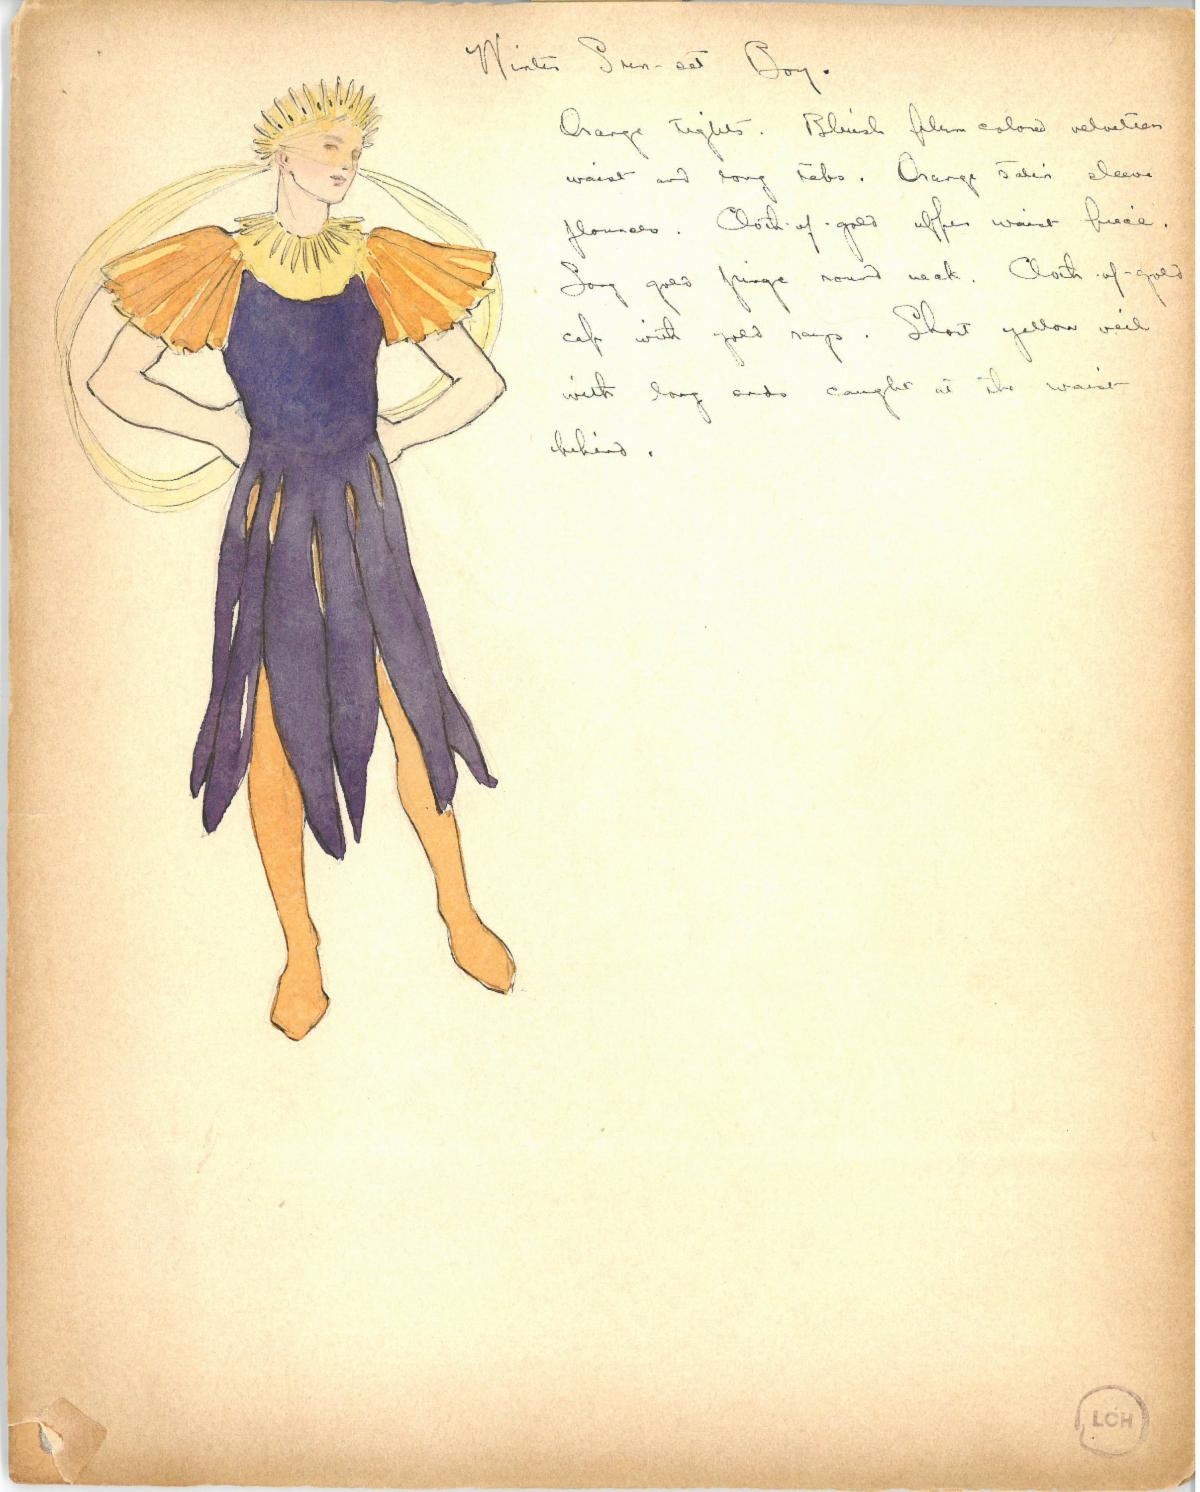 Winter Sun-set Boy.
Orange tights. Bluish plum colored velveteen
waist and long tabs. Orange satin sleeve
flounces. Cloth-of-gold upper waist piece.
Long gold fringe round neck. Cloth-of-gold
cap with gold rays. Short yellow veil
with long ends caught at the waist
behind.
LCH